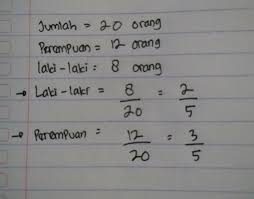 Jumlah = 20 orang
Perempuan = 12 orang
laki-laki = 8 orang
→ Laki-laki = 8/20 = 2/5
→ Perempuan = 12/20 = 3/5